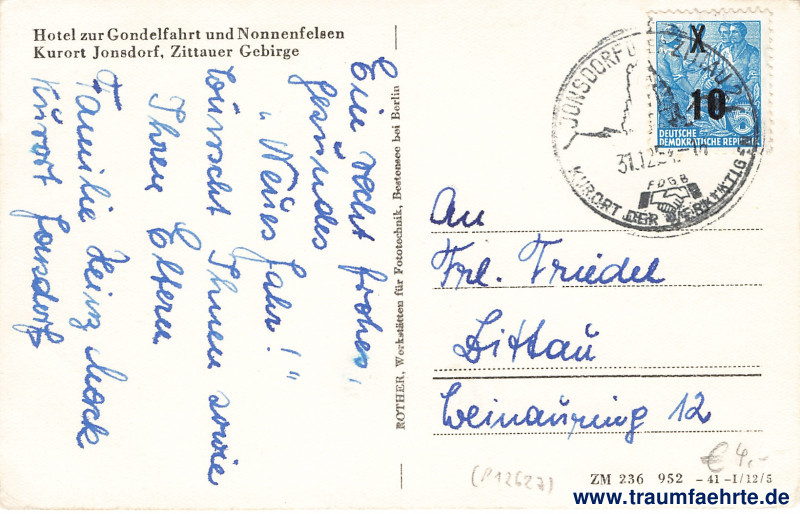 Hotel zur Gondelfahrt und Nonnenfelsen
Kurort Jonsdorf, Zittauer Gebirge
Ein recht frohes,
gesundes
„Neues Jahr!"
wünscht Ihnen sowie
Ihren Eltern
Familie Heinz Mock
Kurort Jonsdorf
ROTHER, Werkstätten für Fototechnik, Bestensee bei Berlin
JONSDORF
31.12.
FDGB
KURORT DER WERKTÄTIGEN
X
10
5
DEUTSCHE
DEMOKRATISCHE REPUBLIK
An
Frl. Friedel
Zittau
Weinauring 12
€ 4,-
(P12627)
ZM 236 952 – 41 – I/12/5
www.traumfaehrte.de